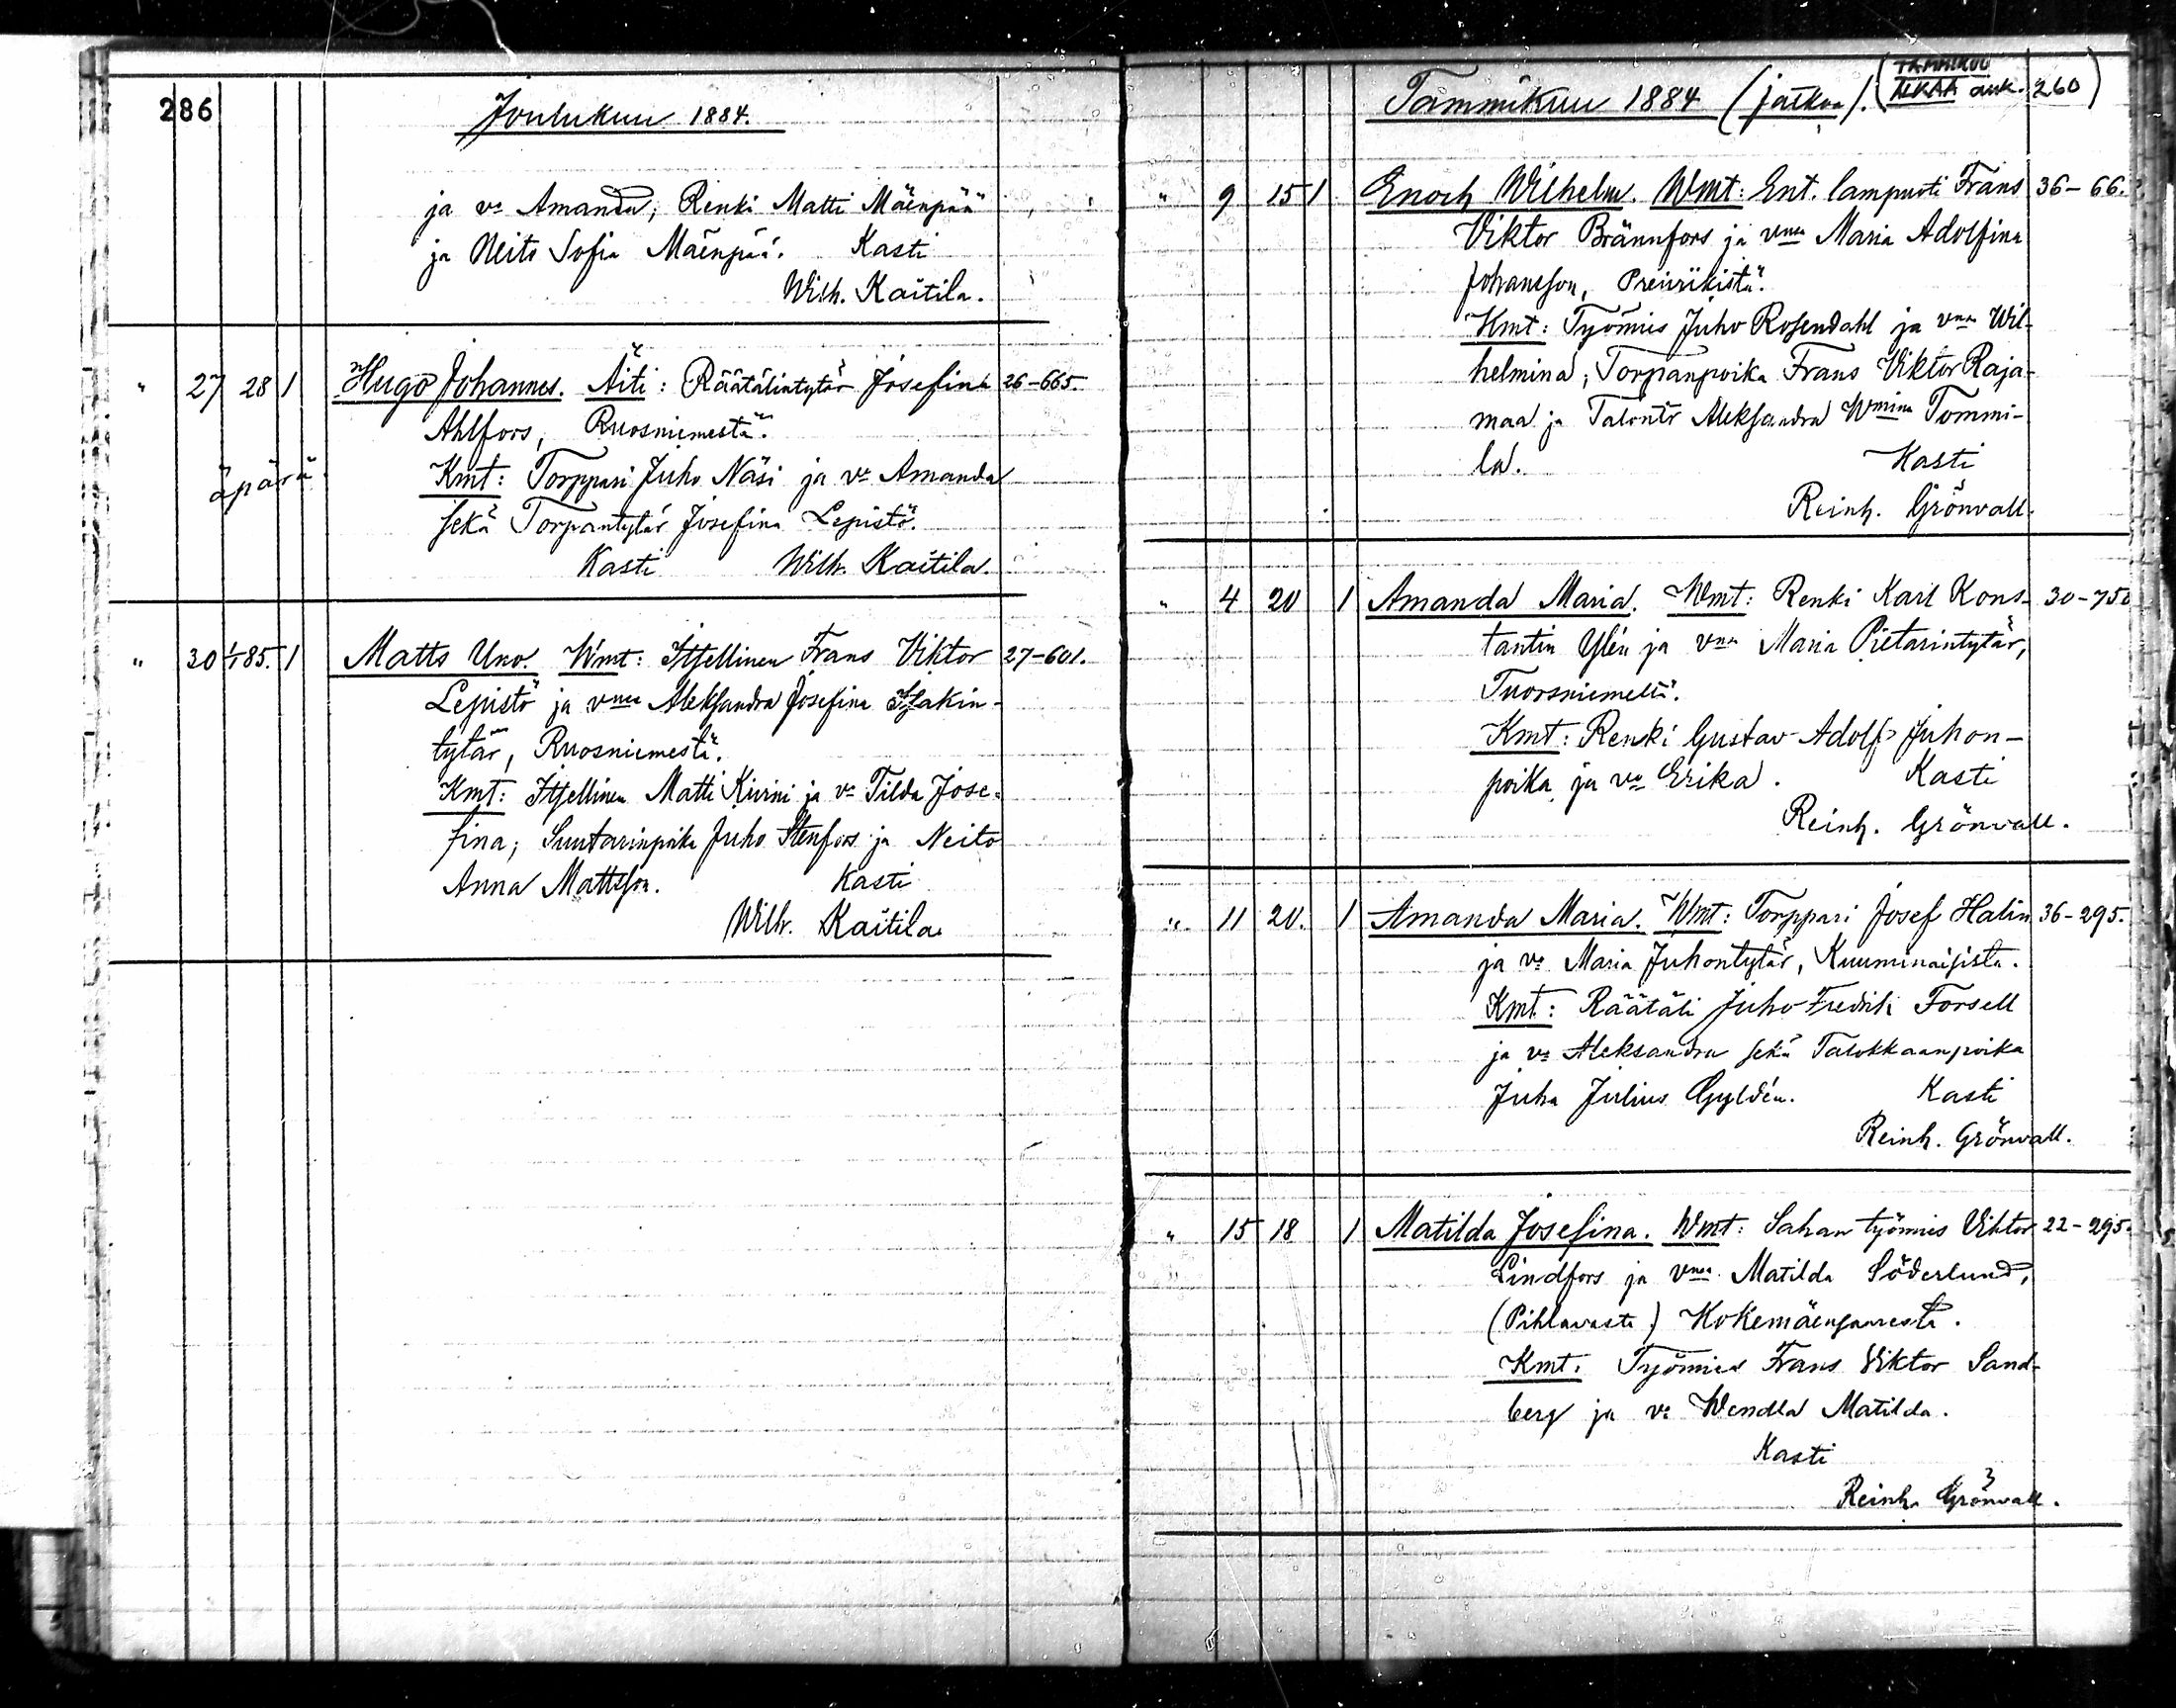 286
Joulukuu 1884.
ja vo Amanda; Renki Matti Mäenpää
ja Neito Sofia Mäenpää. Kasti
Wilh. Kaitila.
" 27 28 1 Hugo Johannes. Äiti: Räätälintytär Josefina 26-665.
Ahlfors, Ruosniemestä.
äpärä Kmt: Torppari Juho Näsi ja vo Amanda
sekä Torpantytär Josefina Lepistö.
Kasti Wilh. Kaitila.
" 30 1/1 85. 1 Matts Uno. Wmt: Itsellinen Frans Viktor 27-601.
Lepistö ja vmsa Aleksandra Josefina Isakin-
tytär, Ruosniemestä.
Kmt: Itsellinen Matti Kivini ja vo Tilda Jose-
fina; Suutarinpoika Juho Stenfors ja Neito
Anna Mattsson. Kasti
Wilh. Kaitila.
Tammikuu 1884 (jatkoa). (TAMMIKUU
ALKAA auk. 260)
" 9 15 1 Enoch Wilhelm. Wmt: Ent. lampuoti Frans 36-66.
Viktor Brännfors ja vmsa Maria Adolfina
Johansson, Preiviikistä.
Kmt: Työmies Juho Rosendahl ja vmsa Wil-
helmina; Torpanpoika Frans Viktor Raja-
maa ja Talontr Aleksandra Wmina Tommi-
la. Kasti
Reinh. Grönvall.
" 4 20 1 Amanda Maria. Wmt: Renki Karl Kons- 30-750
tantin Ylén ja vmsa Maria Pietarintytär,
Tuorsniemeltä.
Kmt: Renki Gustav Adolf Juhon-
poika ja vo Erika. Kasti
Reinh. Grönvall.
" 11 20. 1 Amanda Maria. Wmt: Torppari Josef Halin 36-295.
ja vo Maria Juhontytär, Kuuminaisista.
Kmt: Räätäli Juho Fredrik Forsell
ja vo Aleksandra sekä Talokkaanpoika
Juha Julius Gyldén. Kasti
Reinh. Grönvall.
" 15 18 1 Matilda Josefina. Wmt: Sahan työmies Viktor 22-295.
Lindfors ja vmsa Matilda Söderlund,
(Pihlavasta) Kokemäensaaresta.
Kmt: Työmies Frans Viktor Sand-
berg ja vo Wendla Matilda.
Kasti
Reinh. Grönvall.